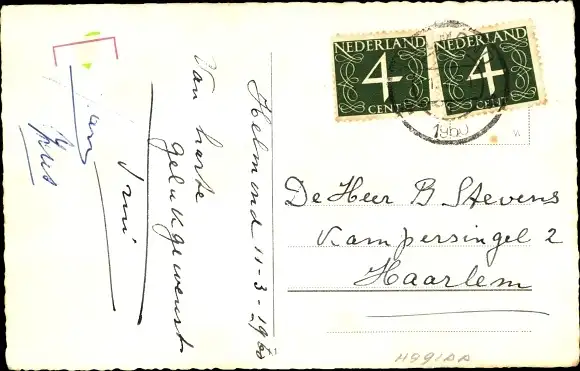 Helmond 11-3-1960
Van harte
gelukgewenst
Truus
NEDERLAND
4
CENT
NEDERLAND
4
CENT
1960
De Heer B Stevens
Kampersingel 2
Haarlem
H991AA